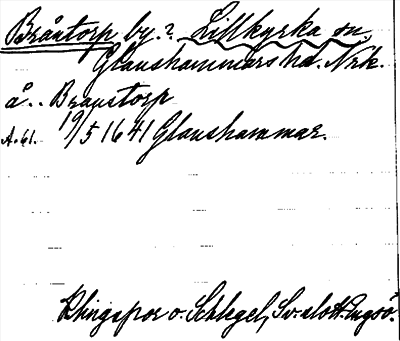 Bråtorp by. ? Lillkyrka sn,
Glanshammars hd. Nrk.
å.. Braustorp
A.61. 19/5 1641 Glanshammar.
Klingspor o. Schlegel, Sv. slott. Engsö.